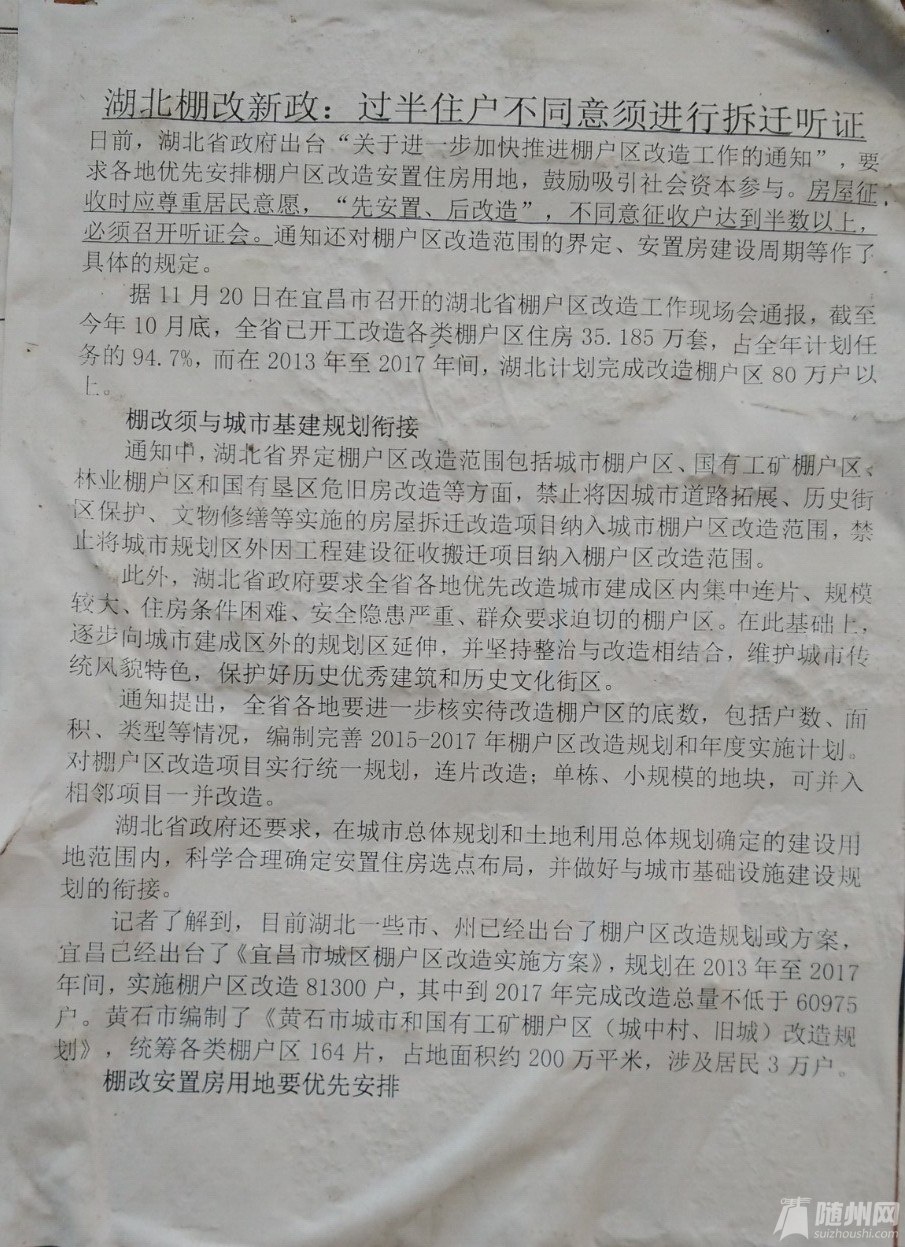 湖北棚改新政：过半住户不同意须进行拆迁听证
日前，湖北省政府出台“关于进一步加快推进棚户区改造工作的通知”，要
求各地优先安排棚户区改造安置住房用地，鼓励吸引社会资本参与。房屋征
收时应尊重居民意愿，“先安置、后改造”，不同意征收户达到半数以上，
必须召开听证会。通知还对棚户区改造范围的界定、安置房建设周期等作了
具体的规定。
据 11 月 20 日在宜昌市召开的湖北省棚户区改造工作现场会通报，截至
今年 10 月底，全省已开工改造各类棚户区住房 35.185 万套，占全年计划任
务的 94.7%，而在 2013 年至 2017 年间，湖北计划完成改造棚户区 80 万户以
上。
棚改须与城市基建规划衔接
通知中，湖北省界定棚户区改造范围包括城市棚户区、国有工矿棚户区、
林业棚户区和国有垦区危旧房改造等方面，禁止将因城市道路拓展、历史街
区保护、文物修缮等实施的房屋拆迁改造项目纳入城市棚户区改造范围，禁
止将城市规划区外因工程建设征收搬迁项目纳入棚户区改造范围。
此外，湖北省政府要求全省各地优先改造城市建成区内集中连片、规模
较大、住房条件困难、安全隐患严重、群众要求迫切的棚户区。在此基础上，
逐步向城市建成区外的规划区延伸，并坚持整治与改造相结合，维护城市传
统风貌特色，保护好历史优秀建筑和历史文化街区。
通知提出，全省各地要进一步核实待改造棚户区的底数，包括户数、面
积、类型等情况，编制完善 2015-2017 年棚户区改造规划和年度实施计划。
对棚户区改造项目实行统一规划，连片改造；单栋、小规模的地块，可并入
相邻项目一并改造。
湖北省政府还要求，在城市总体规划和土地利用总体规划确定的建设用
地范围内，科学合理确定安置住房选点布局，并做好与城市基础设施建设规
划的衔接。
记者了解到，目前湖北一些市、州已经出台了棚户区改造规划或方案，
宜昌已经出台了《宜昌市城区棚户区改造实施方案》，规划在 2013 年至 2017
年间，实施棚户区改造 81300 户，其中到 2017 年完成改造总量不低于 60975
户。黄石市编制了《黄石市城市和国有工矿棚户区（城中村、旧城）改造规
划》，统筹各类棚户区 164 片，占地面积约 200 万平米，涉及居民 3 万户。
棚改安置房用地要优先安排
随州网
suizhoushi.com